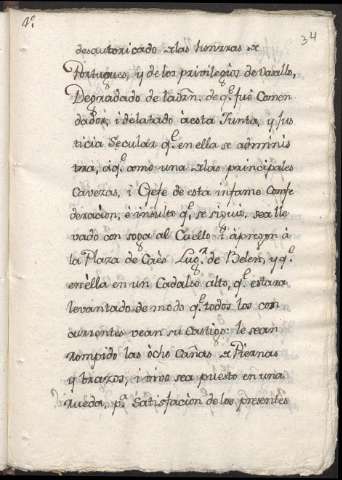 4º
34
desautorizado de las honrras de
Portugues, y de los privilegios de Vasallo,
Degradado de la Ordn. de q.e fue Comen
dador, i delatado a esta Junta, y jus
ticia Secular q.e en ella se adminis
tra, a q.e como una de las principales
Cavezas, i Gefe de esta infame Confe
deracion, é insulto q.e se siguio, sea lle
vado con soga al Cuello i apregon á
la Plaza de Caes Lug.r de Belen, y q.e
en ella en un Cadalso alto, q.e estara
levantado de modo q.e todos los con
currentes vean su Castigo: le sean
rompido las ócho Cañas de Piernas
y brazos, i sea puesto en una
rueda, p.a Satisfacion de los presentes